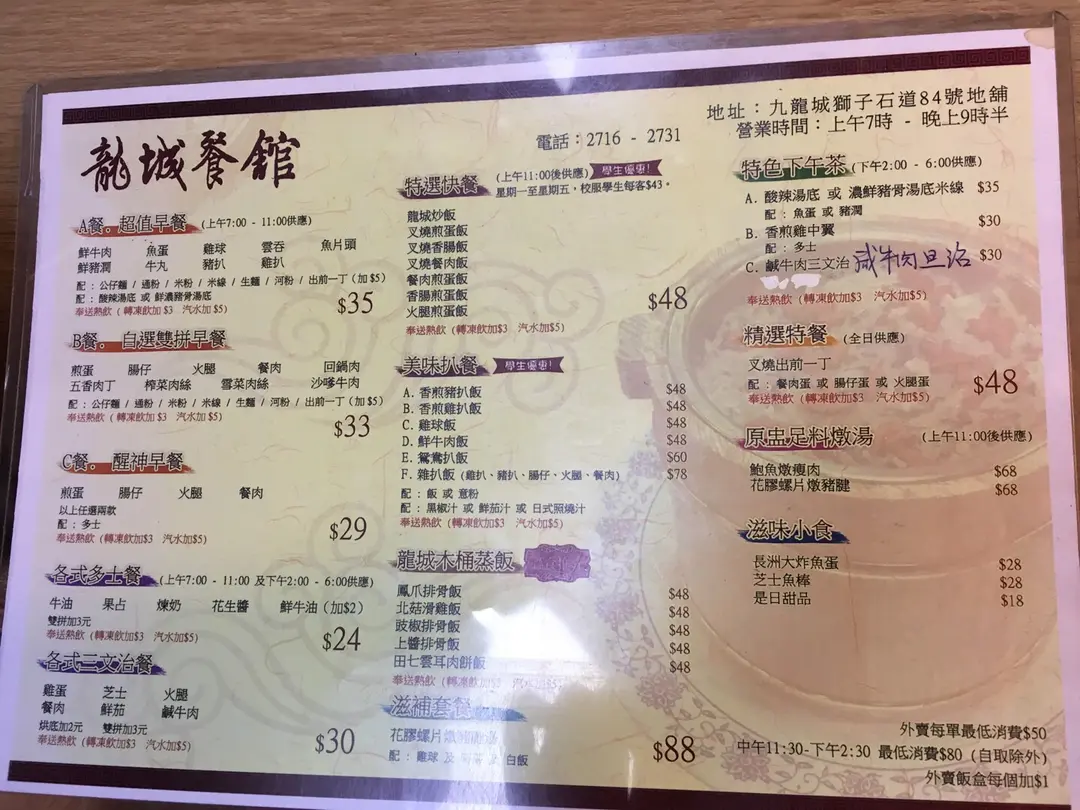 龍城餐館
電話：2716 - 2731
地址：九龍城獅子石道84號地舖
營業時間：上午7時 - 晚上9時半
A餐．超值早餐 (上午7:00 - 11:00供應)
鮮牛肉 魚蛋 雞球 雲吞 魚片頭
鮮豬潤 牛丸 豬扒 雞扒
配：公仔麵 / 通粉 / 米粉 / 米線 / 生麵 / 河粉 / 出前一丁 (加 $5)
配：酸辣湯底 或 鮮濃豬骨湯底
奉送熱飲 (轉凍飲加$3 汽水加$5)
$35
B餐．自選雙拼早餐
煎蛋 腸仔 火腿 餐肉 回鍋肉
五香肉丁 榨菜肉絲 雪菜肉絲 沙嗲牛肉
配：公仔麵 / 通粉 / 米粉 / 米線 / 生麵 / 河粉 / 出前一丁 (加 $5)
奉送熱飲 (轉凍飲加$3 汽水加$5)
$33
C餐．醒神早餐
煎蛋 腸仔 火腿 餐肉
以上任選兩款
配：多士
奉送熱飲 (轉凍飲加$3 汽水加$5)
$29
各式多士餐 (上午7:00 - 11:00 及下午2:00 - 6:00供應)
牛油 果占 煉奶 花生醬 鮮牛油 (加$2)
雙拼加3元
奉送熱飲 (轉凍飲加$3 汽水加$5)
$24
各式三文治餐
雞蛋 芝士 火腿
餐肉 鮮茄 鹹牛肉
烘底加2元 雙拼加3元
奉送熱飲 (轉凍飲加$3 汽水加$5)
$30
特選快餐 (上午11:00後供應) 學生優惠!
星期一至星期五，校服學生每客$43。
龍城炒飯
叉燒煎蛋飯
叉燒香腸飯
叉燒餐肉飯
餐肉煎蛋飯
香腸煎蛋飯
火腿煎蛋飯
$48
奉送熱飲 (轉凍飲加$3 汽水加$5)
美味扒餐 學生優惠!
A. 香煎豬扒飯 $48
B. 香煎雞扒飯 $48
C. 雞球飯 $48
D. 鮮牛肉飯 $48
E. 鴛鴦扒飯 $60
F. 雜扒飯 (雞扒、豬扒、腸仔、火腿、餐肉) $78
配：飯 或 意粉
配：黑椒汁 或 鮮茄汁 或 日式照燒汁
奉送熱飲 (轉凍飲加$3 汽水加$5)
龍城木桶蒸飯
鳳爪排骨飯 $48
北菇滑雞飯 $48
豉椒排骨飯 $48
上醬排骨飯 $48
田七雲耳肉餅飯 $48
奉送熱飲 (轉凍飲加$3 汽水加$5)
滋補套餐
花膠螺片燉
配：雞球 及 白飯
$88
特色下午茶 (下午2:00 - 6:00供應)
A. 酸辣湯底 或 濃鮮豬骨湯底米線 $35
配：魚蛋 或 豬潤
B. 香煎雞中翼 $30
配：多士
C. 鹹牛肉三文治 咸牛肉旦治 $30
奉送熱飲 (轉凍飲加$3 汽水加$5)
精選特餐 (全日供應)
叉燒出前一丁
配：餐肉蛋 或 腸仔蛋 或 火腿蛋
奉送熱飲 (轉凍飲加$3 汽水加$5)
$48
原盅足料燉湯 (上午11:00後供應)
鮑魚燉瘦肉 $68
花膠螺片燉豬腱 $68
滋味小食
長洲大炸魚蛋 $28
芝士魚棒 $28
是日甜品 $18
外賣每單最低消費$50
中午11:30-下午2:30 最低消費$80 (自取除外)
外賣飯盒每個加$1